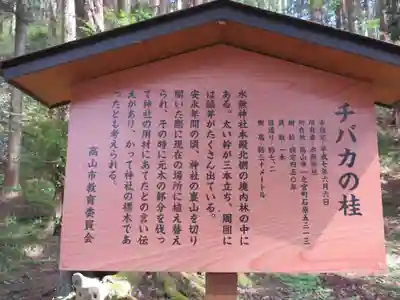 チバカの桂
市指定 平成七年六月六日
所有者 水無神社
所在地 高山市一之宮町石原五三一三
樹齢 推定四五〇年
員数 一本
目通り 約七、二
樹高 約三十メートル
水無神社本殿北側の境内林の中に
ある。太い幹が三本立ち、周囲に
は脇芽がたくさん出ている。
安永年間の頃、神社の裏山を切り
開いた際に現在の場所に植え替え
られ、その時に元木の部分を伐っ
て神社の用材にあてたとの言い伝
えがあり、かつて神社の標木であ
ったとも考えられる。
高山市教育委員会